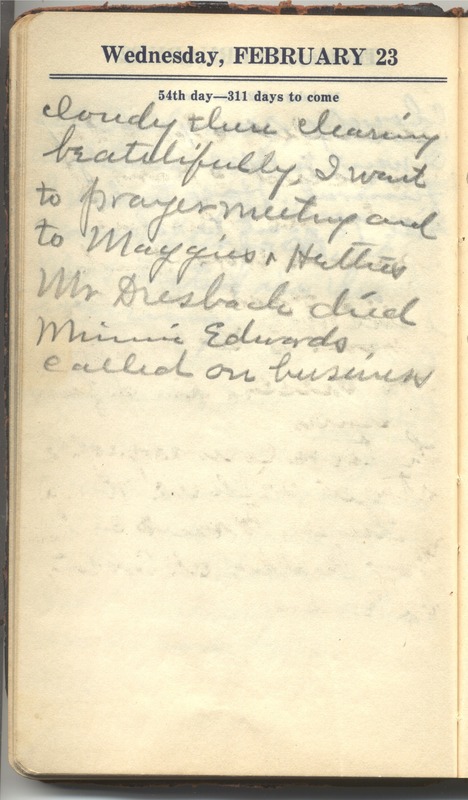 Wednesday, FEBRUARY 23
54th day—311 days to come
cloudy then clearing
beatulifully, I went
to prayer meeting and
to Maggies & Hatties
Mr Dresback died
Minnie Edwards
called on business